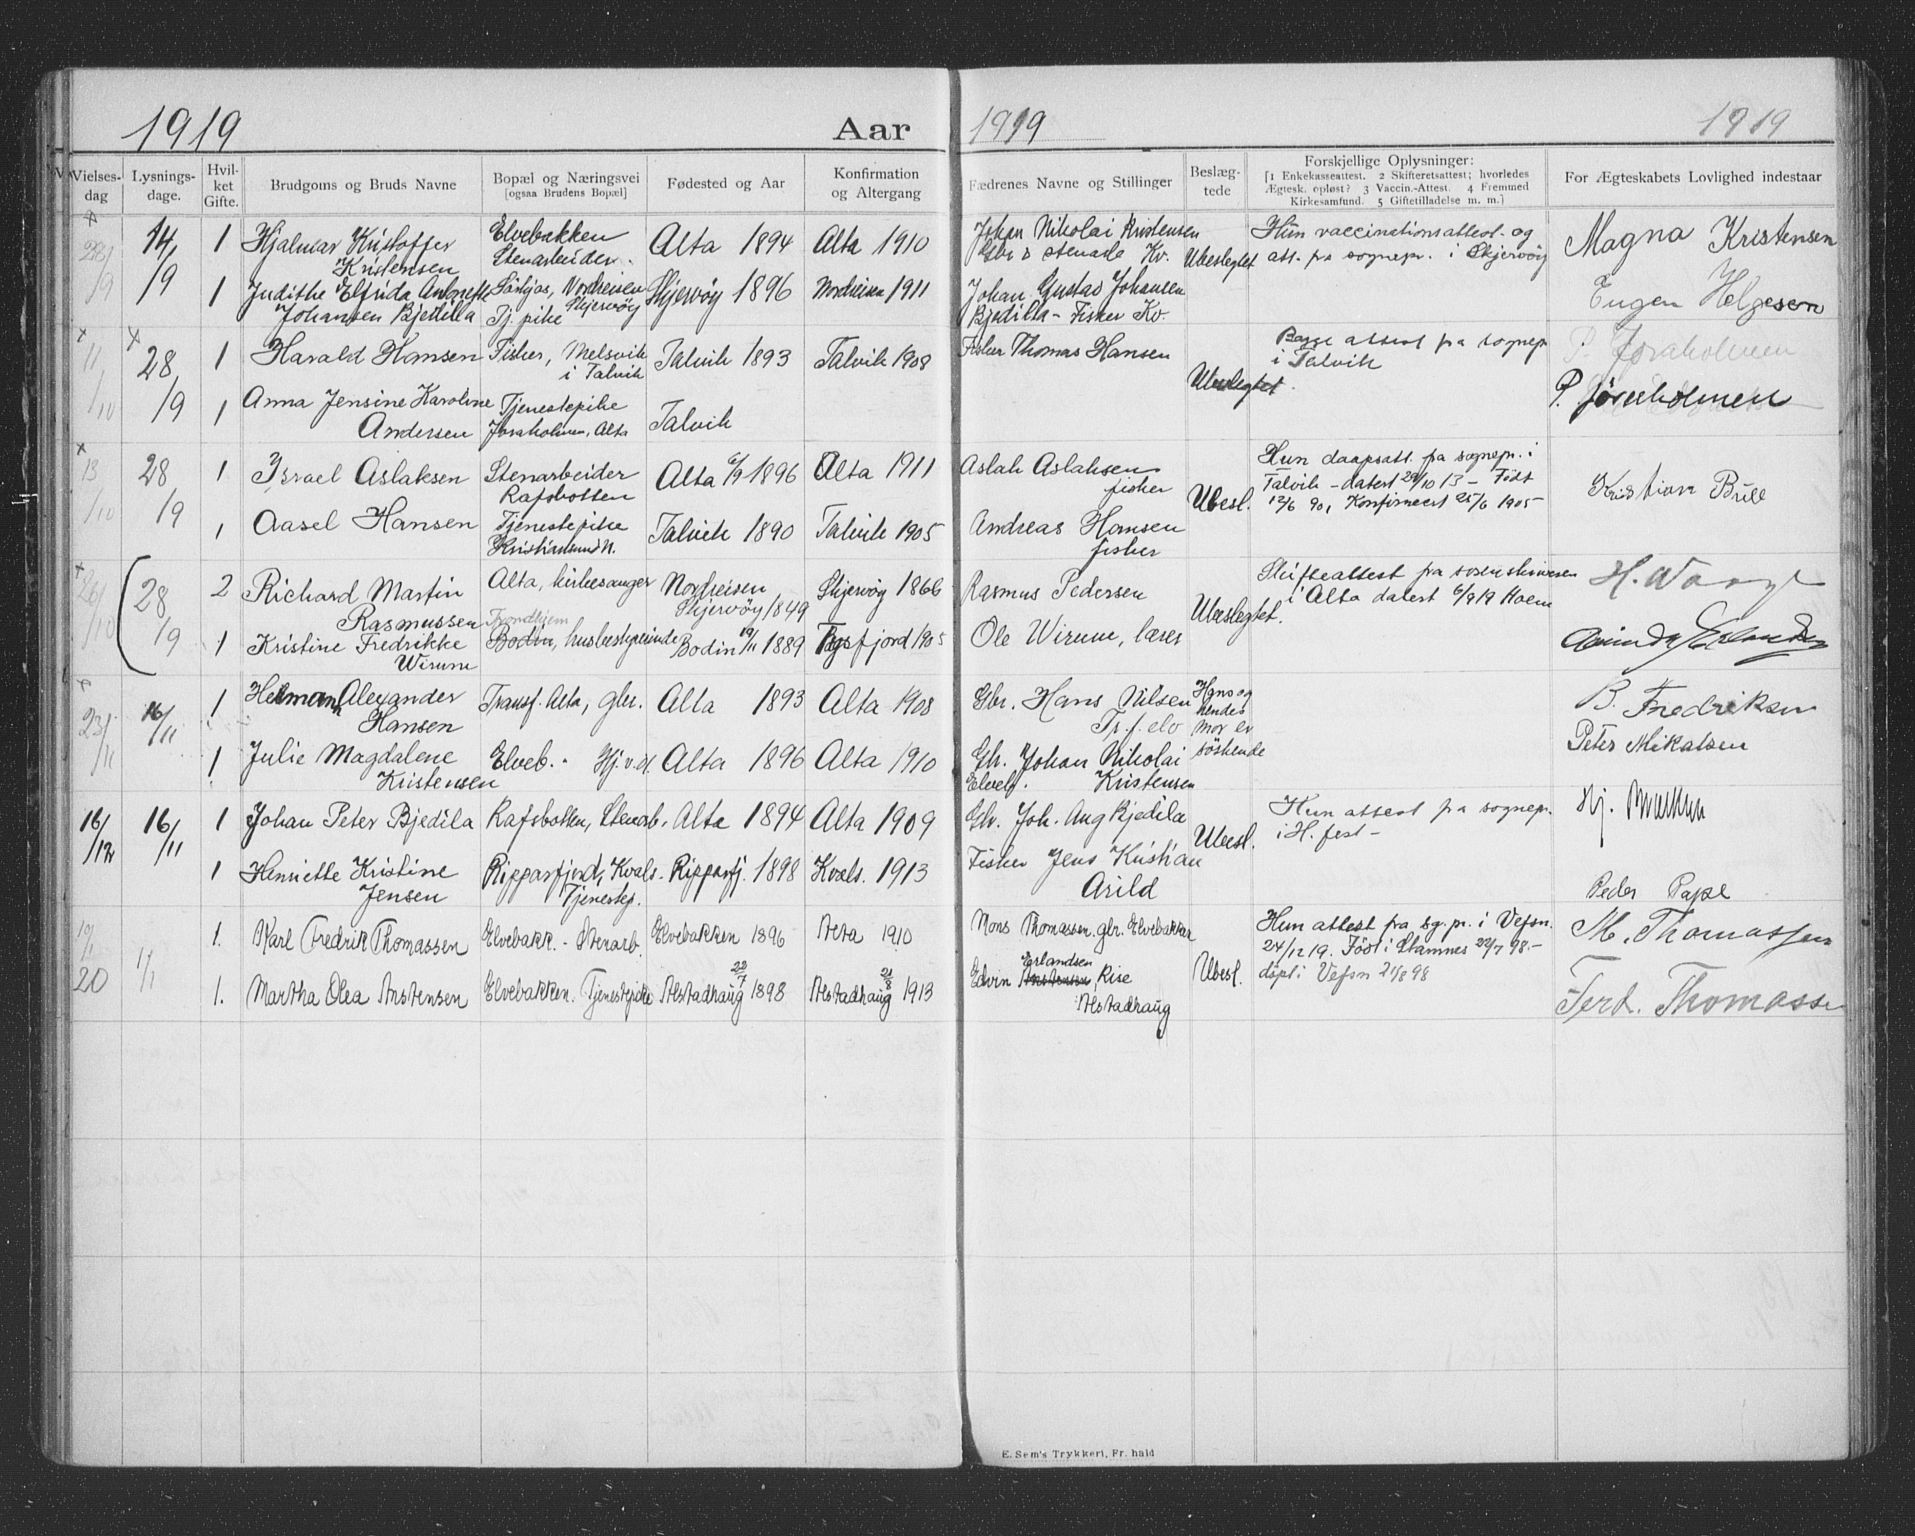 1919 Aar 1919 1919
Vielses-dag Lysnings-dage. Hvilket Gifte. Brudgoms og Bruds Navne Bopæl og Næringsvei [ogsaa Brudens Bopæl] Fødested og Aar Konfirmation og Altergang Fædrenes Navne og Stillinger Beslægtede Forskjellige Oplysninger: [1 Enkekasseattest. 2 Skifteretsattest; hvorledes Ægtesk. opløst? 3 Vaccin.-Attest. 4 Fremmed Kirkesamfund. 5 Giftetilladelse m. m.] For Ægteskabets Lovlighed indestaar
14/9 1 Hjalmar Kristoffer Kristensen Elvebakken Stenarbeider. Alta 1894 Alta 1910 Johan Nikolai Kristensen Ubeslegtet Hun vaccinationsattest og att. fra sognepr. i Skjervøy Magna Kristensen
1 Judithe Elfrida Antonette Johansen Bjedilla Nordreisen Skjervøy Tj. pike Skjervøy 1896 Nordreisen 1911 Johan Gustav Johansen Bjedilla - Fisker Kv. Eugen Helgesen
x 11/10 x 28/9 1 Harald Hansen Fisher, Melsvik i Talvik Talvik 1893 Talvik 1908 Fisher Thomas Hansen Ubeslegtet. Begge attest fra sognepr i Talvik P. Joraholmen
1 Anna Jensine Karoline Andersen Tjenestepike Joraholmen, Alta Talvik P. Joraholmen
x 13/10 28/9 1 Israel Aslaksen Stenarbeider Rafsbotten Alta 6/9 1896 Alta 1911 Aslak Aslaksen fisher Ubesl. Hun daapsatt. fra sognepr. i Talvik - datert 29/10 13 - Født 12/6 90, Konfirmeert 25/6 1905 - Kristian Bull
1 Aasel Hansen Tjenestepike Kristiansund N. Talvik 1890 Talvik 1905 Andreas Hansen fisher
x 26/10 28/9 2 Richard Martin Rasmussen Alta, kirkesanger Nordreisen Skjervøy 1849 Skjervøy 1866 Rasmus Pedersen Ubeslegtet. Skifteattest fra sorenskriveren i Alta datert 6/9 19 Holm
1 Kristine Fredrikke Wirum Trondhjem Bodin, husbestyrerinde Bodin 19/11 1889 1905 Ole Wirum, lærer
x 23/11 16/11 1 Herman Alexander Hansen Transf. Alta, gbr. Alta 1893 Alta 1908 Gbr. Hans Nilsen Tr.f. elv Hans og hendes mor er søskende B. Fredriksen
1 Julie Magdalene Kristensen Elveb. - Hj.v.d. Alta 1896 Alta 1910 Gbr. Johan Nikolai Kristensen Elveb. Peter Mikalsen
16/12 16/11 1 Johan Peter Bjedila Rafsbotten, Stenarb. Alta 1894 Alta 1909 Gbr. Joh. Aug Bjedila Ubesl. Hun attest fra sognepr. i H.fest -
1 Henriette Kristine Jensen Ripparfjord, Kvals. Tjenestep. Ripparfj. 1898 Kvals. 1913 Fisher Jens Kristian Arild Peder Pape
1/1 1. Karl Fredrik Thomassen Elvebakk. - Stenarb. Elvebakken 1896 Alta 1910 Mons Thomassen, gbr. Elvebakken Ubesl. Hun attest fra sg. pr. i Vefsn. 24/12 19. Født i Stamnes 22/7 98. - døpt i Vefsn 21/8 98 M. Thomassen
20 1. Martha Olea Anstensen Elvebakken. Tjenestepike Alstadhaug 22/7 1898 Alstadhaug 21/8 1913 Edvin Erlandsen Rise Alstadhaug Ferd. Thomassen
E. Sem's Trykkeri, Fr. hald